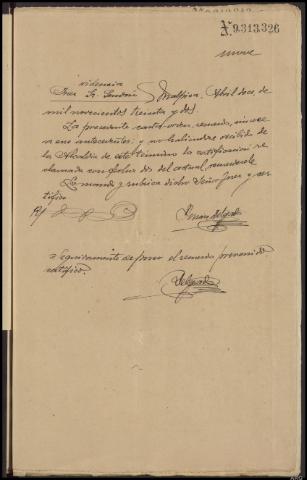 N.9.313.326
nueve
Providencia
Juez Sr. Malpica, Abril doce, de
mil novecientos treinta y dos
La presente carta-orden, recuerdo, únase
a sus antecedentes; y no habiendose recibido de
la Alcaldia de este termino la certificacion re
clamada con fecha dos del actual recuerdese
Lo manda y rubrica dicho Señor Juez y cer
tifico
Delgado
Seguidamente se pone el recuerdo prevenido
certifico
Delgado